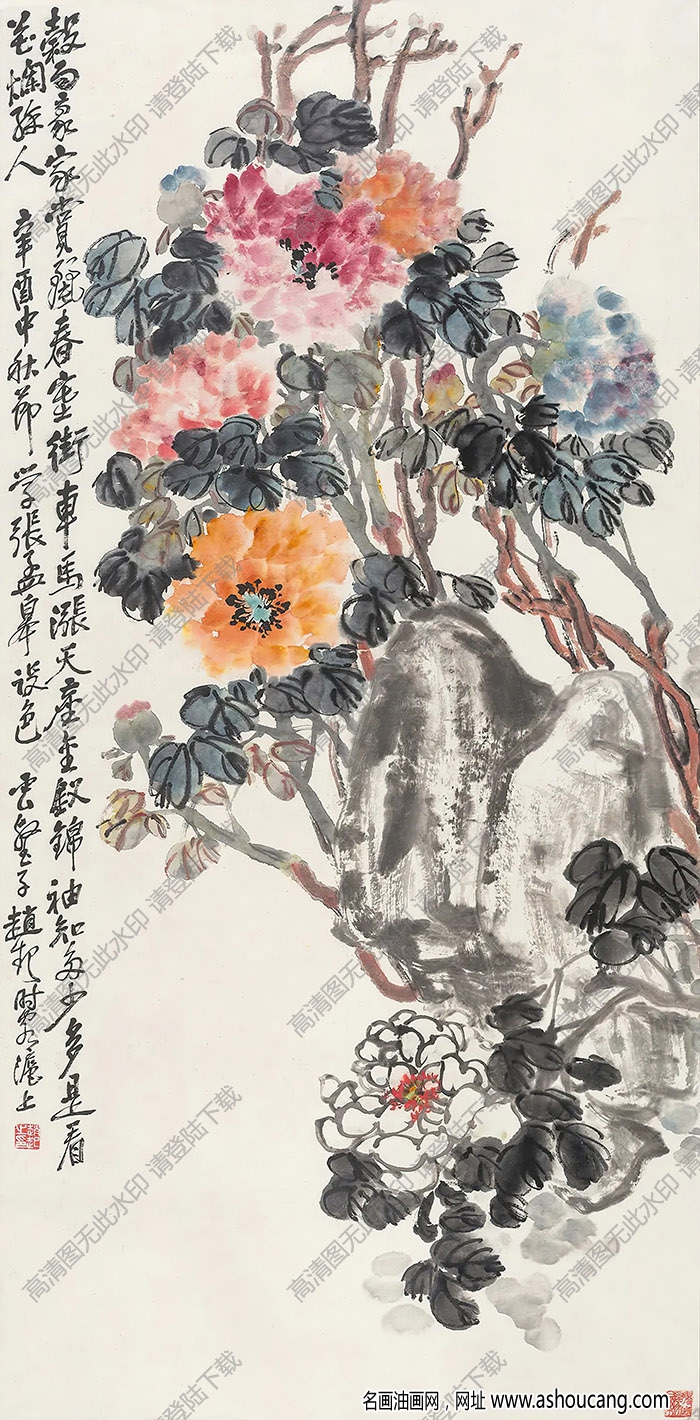 穀雨豪家賞麗春塞街車馬漲天塵金釵錦袖知多少多是看
花爛醉人 辛酉中秋節 學張孟皋設色 雲壑子趙起時客滬上
高清图无此水印 请登陆下载
名画油画网，网址 www.ashoucang.com